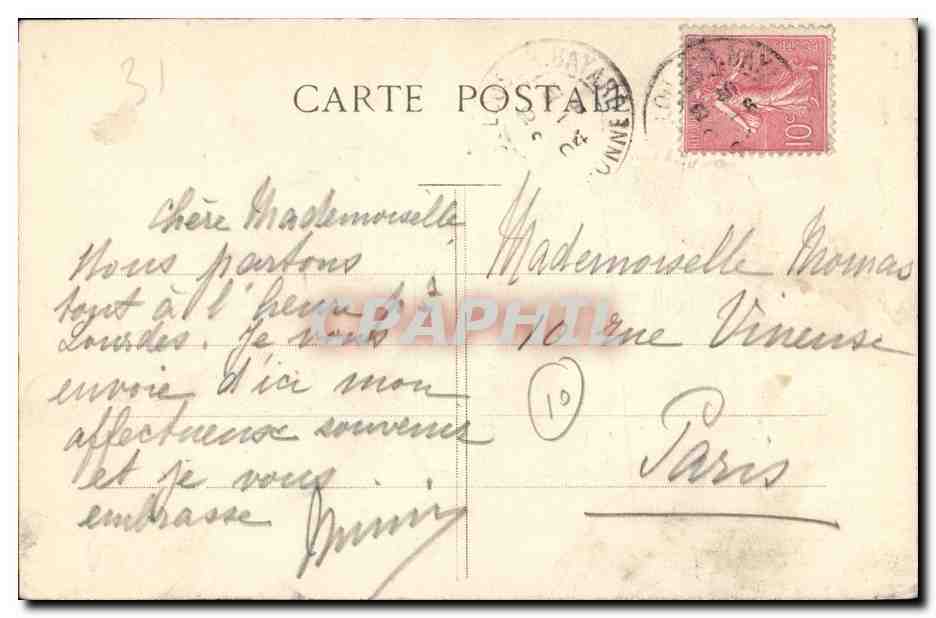 31
CARTE POSTALE
10c
Chère Mademoiselle
Nous partons
tout à l'heure à
Lourdes. Je vous
envoie d'ici mon
affectueux souvenir
et je vous
embrasse
Mademoiselle Momas
10 rue Vineuse
10
Paris
CPAPHIL